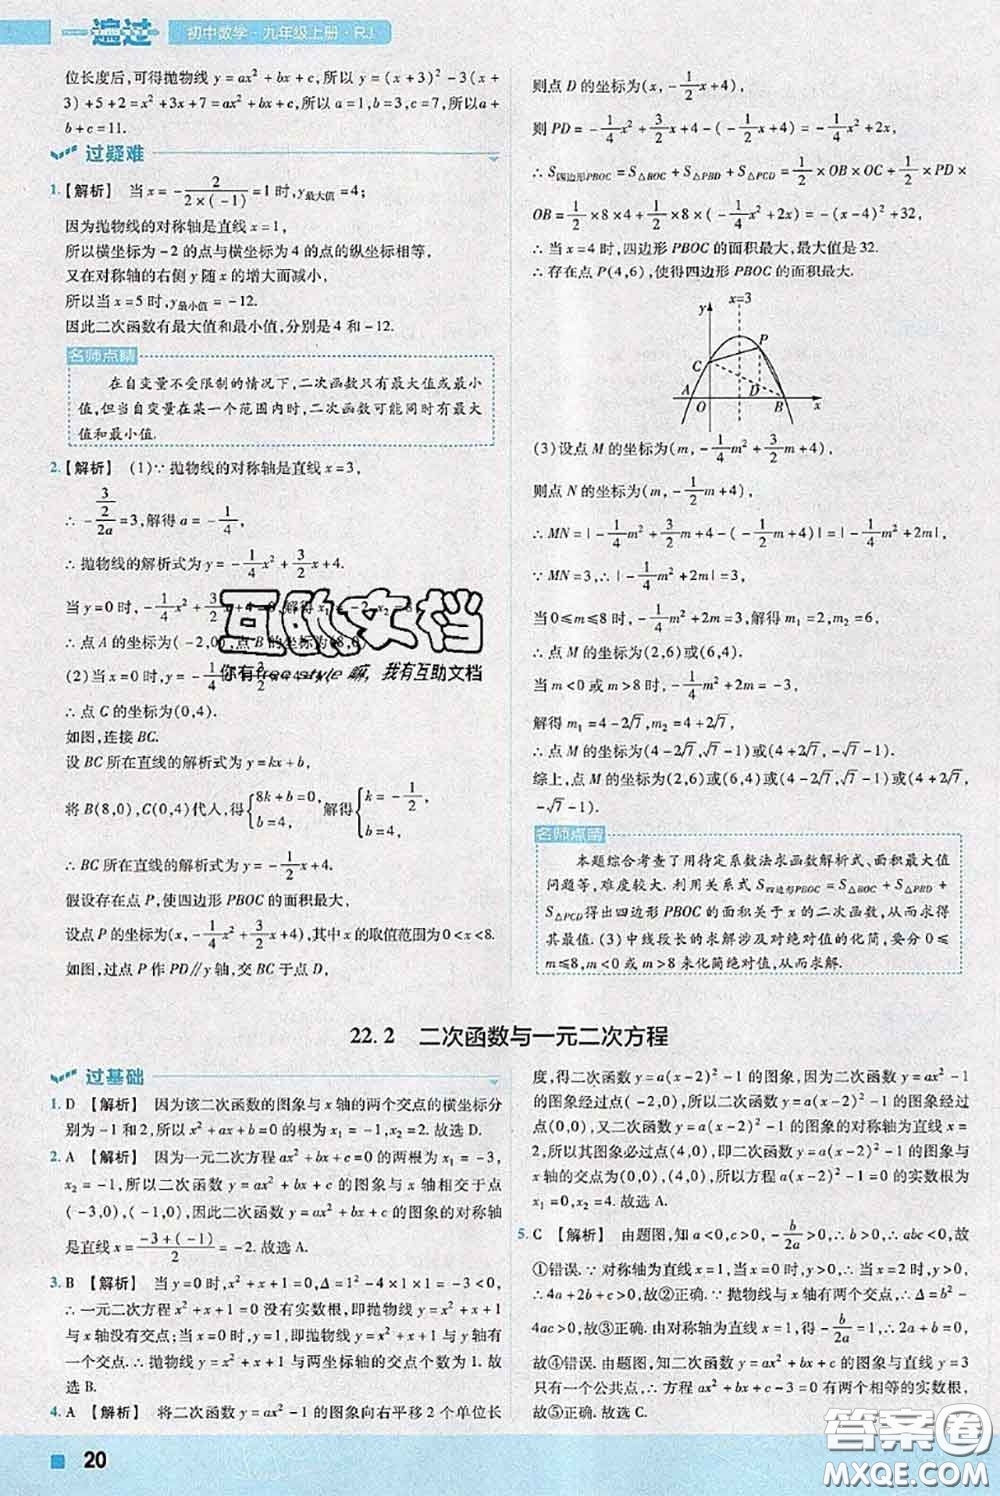 一遍过 初中数学·九年级上册·RJ
位长度后,可得抛物线 y = ax² + bx + c,所以 y = (x + 3)² - 3(x +
3) + 5 + 2 = x² + 3x + 7 = ax² + bx + c,所以 a = 1,b = 3,c = 7,所以 a +
b + c = 11.
过疑难
1.【解析】 当 x = -2/(2×(-1)) = 1 时,y最大值 = 4;
因为抛物线的对称轴是直线 x = 1,
所以横坐标为 -2 的点与横坐标为 4 的点的纵坐标相等,
又在对称轴的右侧 y 随 x 的增大而减小,
所以当 x = 5 时,y最小值 = -12.
因此二次函数有最大值和最小值,分别是 4 和 -12.
名师点睛
在自变量不受限制的情况下,二次函数只有最大值或最小
值,但当自变量在某一个范围内时,二次函数可能同时有最大
值和最小值.
2.【解析】 (1)∵ 抛物线的对称轴是直线 x = 3,
∴ -(3/2)/(2a) = 3,解得 a = -1/4,
∴ 抛物线的解析式为 y = -1/4x² + 3/2x + 4.
当 y = 0 时, -1/4x² + 3/2x + 4 = 0,解得 x₁ = -2,x₂ = 8,
∴ 点 A 的坐标为(-2,0),点 B 的坐标为(8,0).
(2)当 x = 0 时,y = -1/4x² + 3/2x + 4 = 4,
∴ 点 C 的坐标为(0,4).
如图,连接 BC.
设 BC 所在直线的解析式为 y = kx + b,
将 B(8,0),C(0,4)代人,得{8k + b = 0, b = 4, 解得{k = -1/2, b = 4,
∴ BC 所在直线的解析式为 y = -1/2x + 4.
假设存在点 P,使四边形 PBOC 的面积最大,
设点 P 的坐标为(x, -1/4x² + 3/2x + 4),其中 x 的取值范围为 0 < x < 8.
如图,过点 P 作 PD∥y 轴,交 BC 于点 D,
则点 D 的坐标为(x, -1/2x + 4),
则 PD = -1/4x² + 3/2x + 4 - (-1/2x + 4) = -1/4x² + 2x,
∴ S四边形PBOC = S△BOC + S△PBD + S△PCD = 1/2 × OB × OC + 1/2 × PD ×
OB = 1/2 × 8 × 4 + 1/2 × 8 × (-1/4x² + 2x) = -(x - 4)² + 32,
∴ 当 x = 4 时,四边形 PBOC 的面积最大,最大值是 32.
∴ 存在点 P(4,6),使得四边形 PBOC 的面积最大.
x=3
y
C P
A O D B x
(3)设点 M 的坐标为(m, -1/4m² + 3/2m + 4),
则点 N 的坐标为(m, -1/2m + 4),
∴ MN = | -1/4m² + 3/2m + 4 - (-1/2m + 4) | = | -1/4m² + 2m |.
∵ MN = 3,∴ | -1/4m² + 2m | = 3,
当 0≤m≤8 时, -1/4m² + 2m = 3,解得 m₁ = 2,m₂ = 6,
∴ 点 M 的坐标为(2,6)或(6,4).
当 m < 0 或 m > 8 时, -1/4m² + 2m = -3,
解得 m₁ = 4 - 2√7,m₂ = 4 + 2√7,
∴ 点 M 的坐标为(4 - 2√7,√7 - 1)或(4 + 2√7, -√7 - 1).
综上,点 M 的坐标为(2,6)或(6,4)或(4 - 2√7,√7 - 1)或(4 + 2√7,
-√7 - 1).
名师点睛
本题综合考查了用待定系数法求函数解析式、面积最大值
问题等,难度较大. 利用关系式 S四边形PBOC = S△BOC + S△PBD +
S△PCD得出四边形 PBOC 的面积关于 x 的二次函数,从而求得
其最值. (3)中线段长的求解涉及对绝对值的化简,要分 0≤
m≤8,m<0 或 m>8 来化简绝对值,从而求解.
互助文档
你有free style嘛,我有互助文档
22.2 二次函数与一元二次方程
过基础
1. D 【解析】 因为该二次函数的图象与 x 轴的两个交点的横坐标分
别为 -1 和 2,所以 x² + ax + b = 0 的根为 x₁ = -1,x₂ = 2. 故选 D.
2. A 【解析】 因为一元二次方程 ax² + bx + c = 0 的两根为 x₁ = -3,
x₂ = -1,所以二次函数 y = ax² + bx + c 的图象与 x 轴相交于点
(-3,0),(-1,0),因此二次函数 y = ax² + bx + c 的图象的对称轴
是直线 x = (-3 + (-1))/2 = -2. 故选 A.
3. B 【解析】 当 y = 0 时,x² + x + 1 = 0,Δ = 1² - 4 × 1 × 1 = -3 < 0,
∴ 一元二次方程 x² + x + 1 = 0 没有实数根,即抛物线 y = x² + x + 1
与 x 轴没有交点;当 x = 0 时,y = 1,即抛物线 y = x² + x + 1 与 y 轴有
一个交点. ∴ 抛物线 y = x² + x + 1 与两坐标轴的交点个数为 1. 故
选 B.
4. A 【解析】 将二次函数 y = ax² - 1 的图象向右平移 2 个单位长
度,得二次函数 y = a(x - 2)² - 1 的图象,因为二次函数 y = ax² - 1
的图象经过点(-2,0),所以二次函数 y = a(x - 2)² - 1 的图象经过
点(0,0),又二次函数 y = a(x - 2)² - 1 的图象的对称轴为直线 x =
2,所以其图象必过点(4,0),即二次函数 y = a(x - 2)² - 1 的图象与
x 轴的交点为(0,0),(4,0),所以方程 a(x - 2)² - 1 = 0 的实数根为
x₁ = 0,x₂ = 4. 故选 A.
5. C 【解析】 由题图,知 a < 0,c > 0, -b/2a > 0,∴ b > 0,∴ abc < 0,故
①错误. ∵ 对称轴为直线 x = 1,∴ -b/2a = 1,
∴ 4a + 2b + c > 0,故②正确. ∵ 抛物线与 x 轴有两个交点,∴ Δ = b² -
4ac > 0,故③正确. 由对称轴为直线 x = 1,得 -b/2a = 1,
故④错误. 由题图,知二次函数 y = ax² + bx + c 的图象与直线 y = 3
只有一个公共点,∴ 方程 ax² + bx + c = 3 有两个相等的实数根,
故⑤正确. 故选 C.
20
答案圈
MXQE.COM